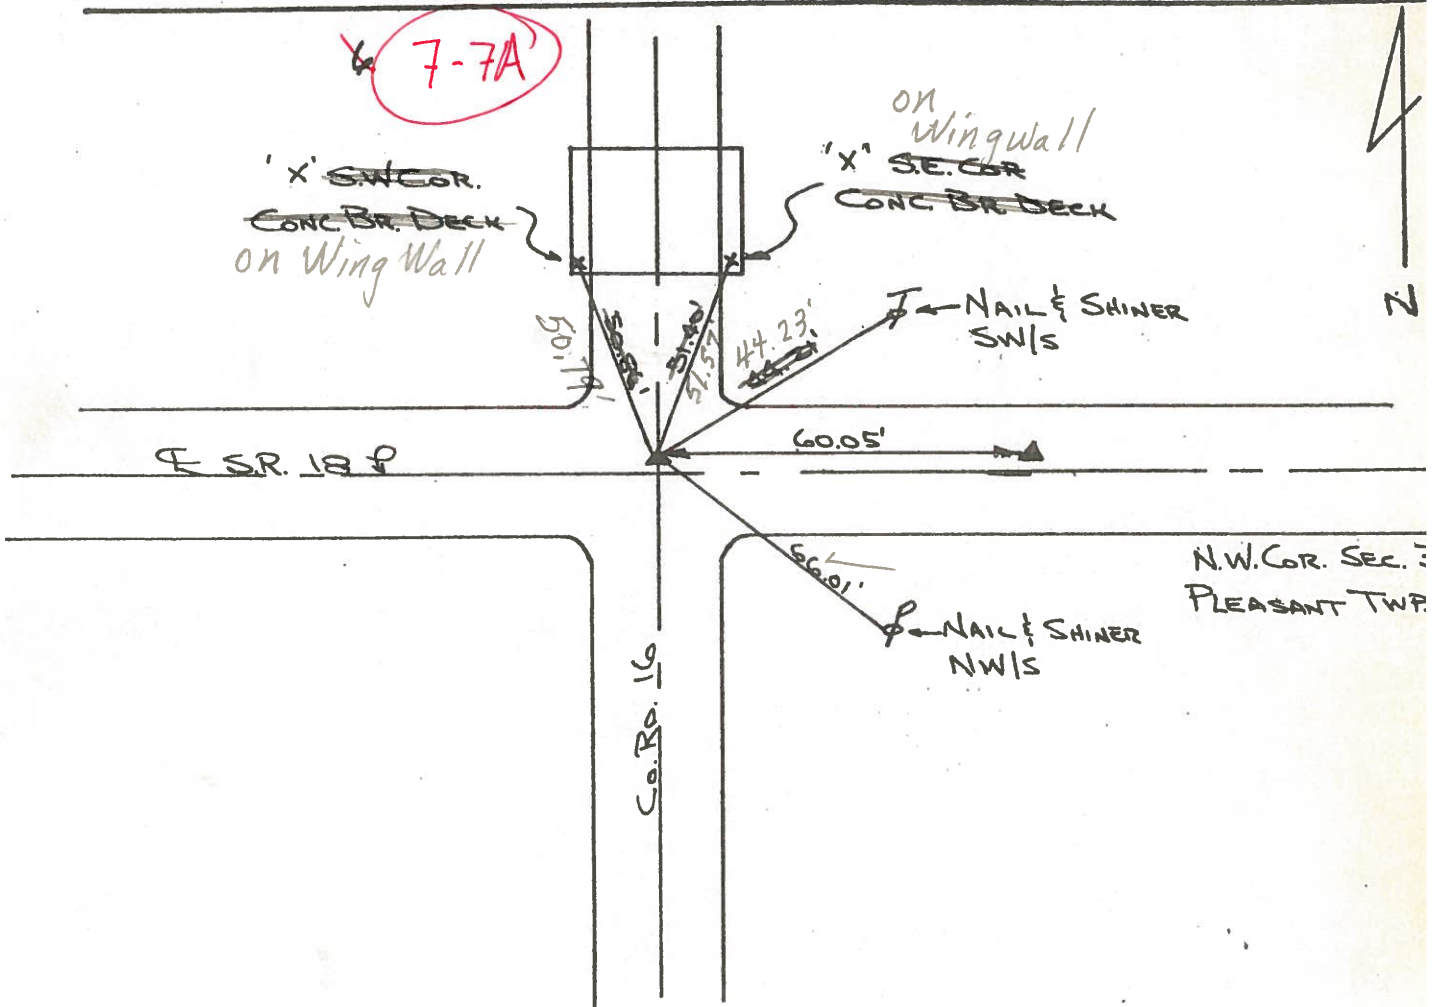 7-7A
on
Wingwall
'X' S.W COR.
CONC. BR. DECK
on Wing Wall
"X" S.E. COR
CONC. BR DECK
NAIL & SHINER
SW/S
N
50.79'
50.86'
51.40'
51.57
44.23'
60.05'
℄ S.R. 18
56.01'
N.W. COR. SEC.
PLEASANT TWP.
NAIL & SHINER
NW/S
CO. RD. 16